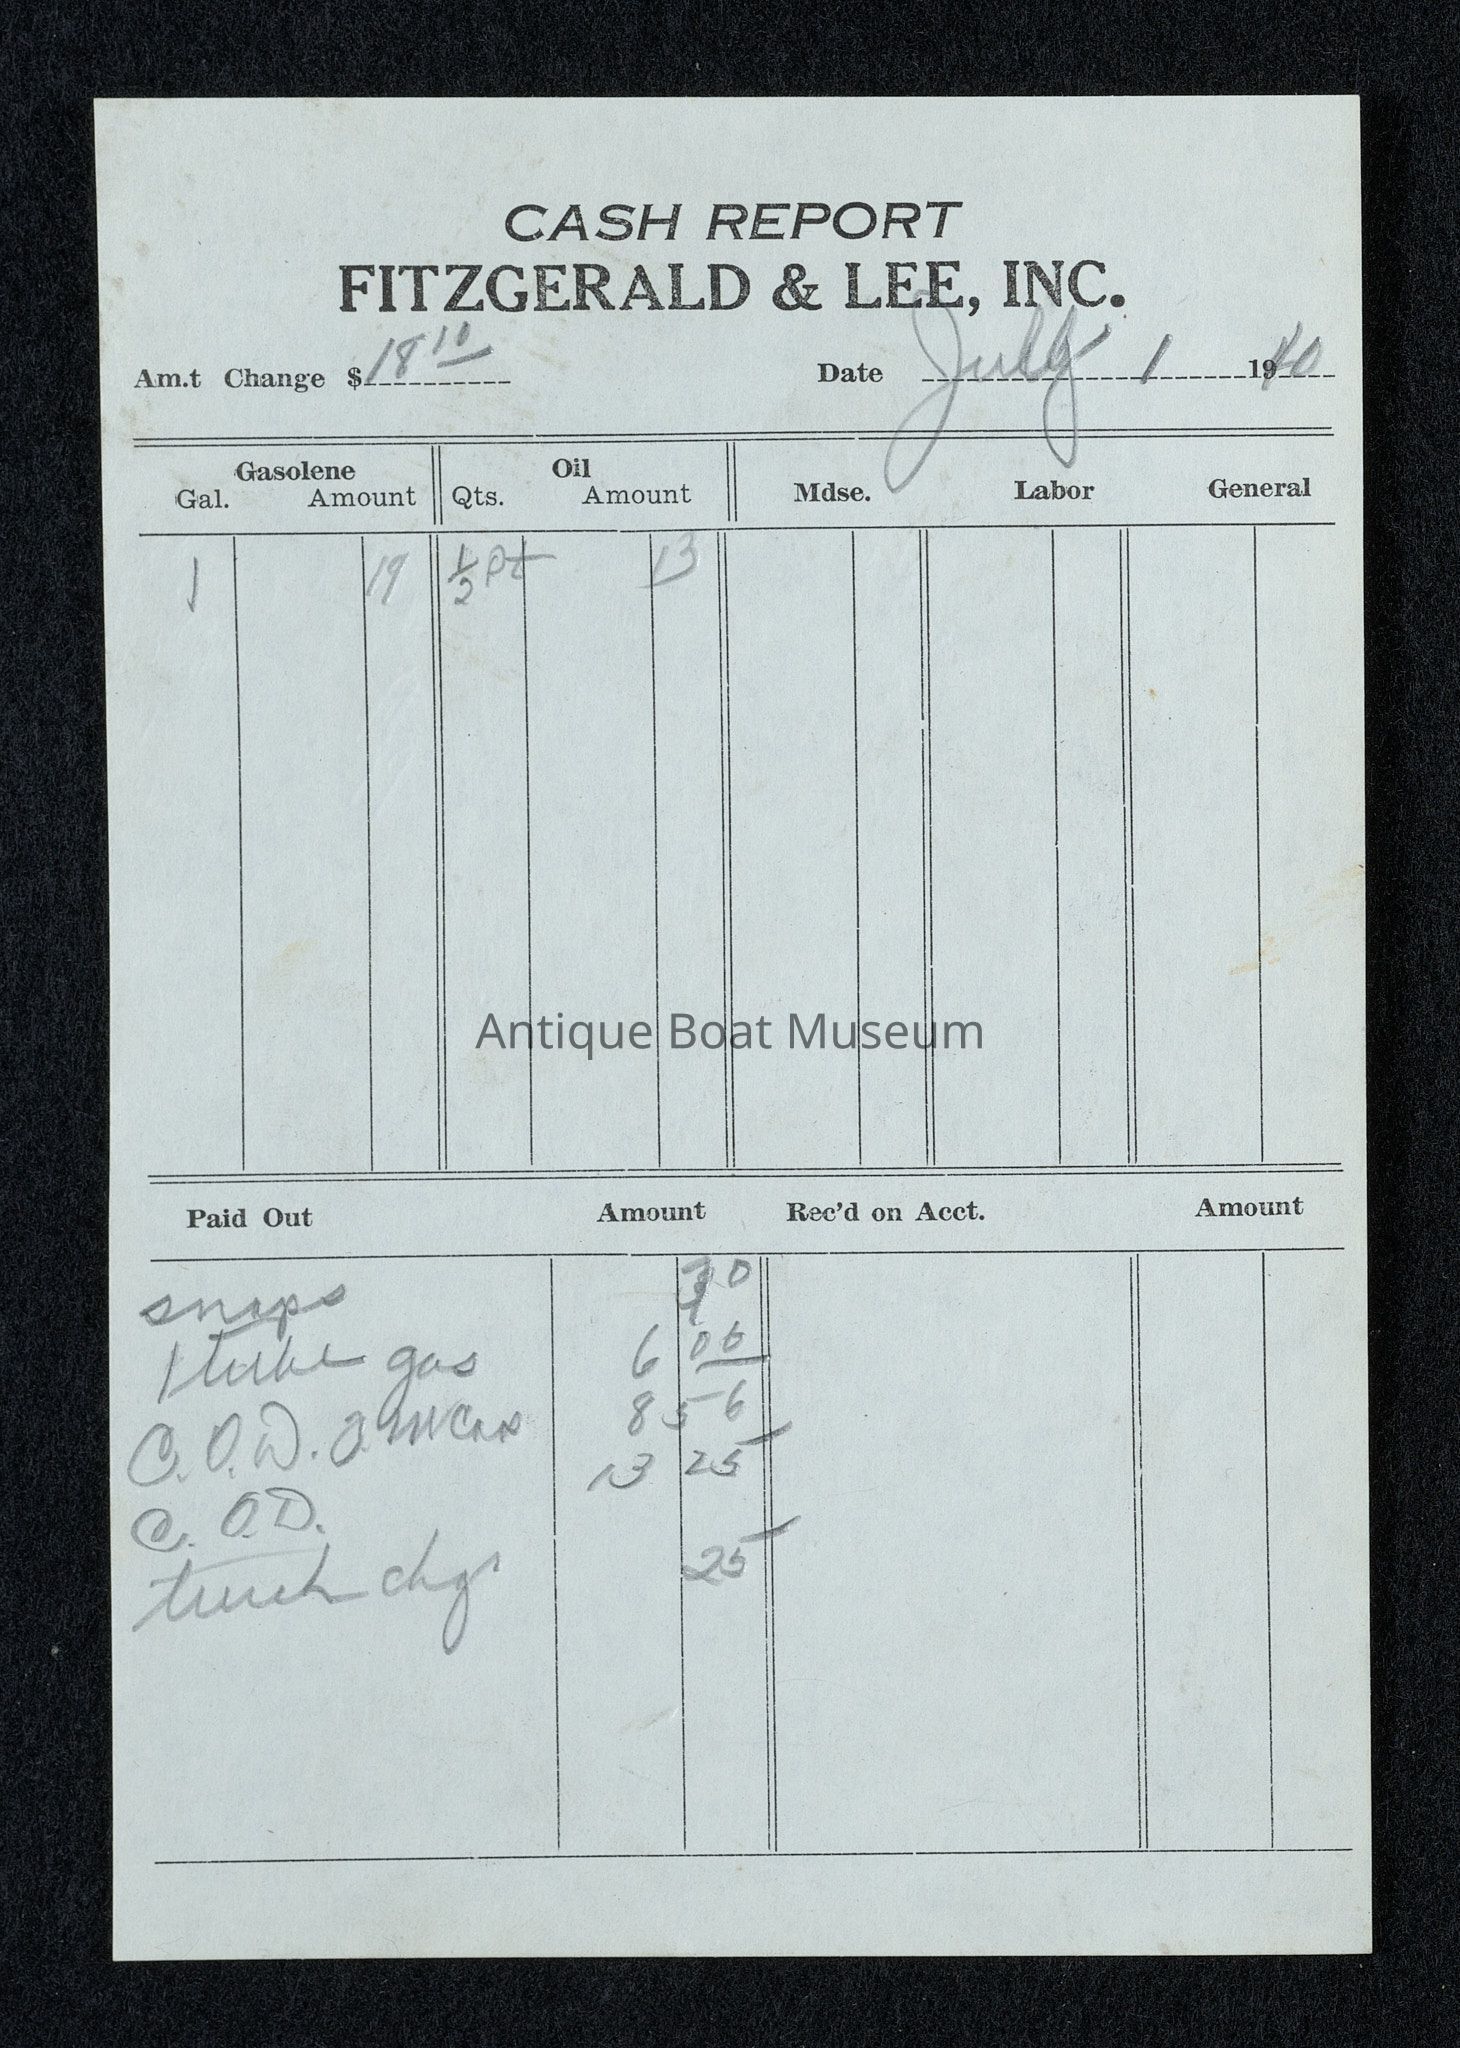 CASH REPORT
FITZGERALD & LEE, INC.
Am.t Change $ 18 10 Date July 1 1940
Gasolene Oil
Gal. Amount Qts. Amount Mdse. Labor General
1 19 1/2 pt 13
Antique Boat Museum
Paid Out Amount Rec'd on Acct. Amount
snaps
1 tube gas 6 06
C.O.D. 8 56
C.O.D. 13 25
truck chgs 25